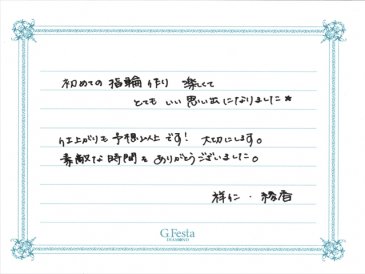 初めての指輪作り 楽しくて
とても いい思い出になりました★
仕上がりも予想以上です! 大切にします。
素敵な時間をありがとうございました。
祥仁・綾香
G.Festa
DIAMOND